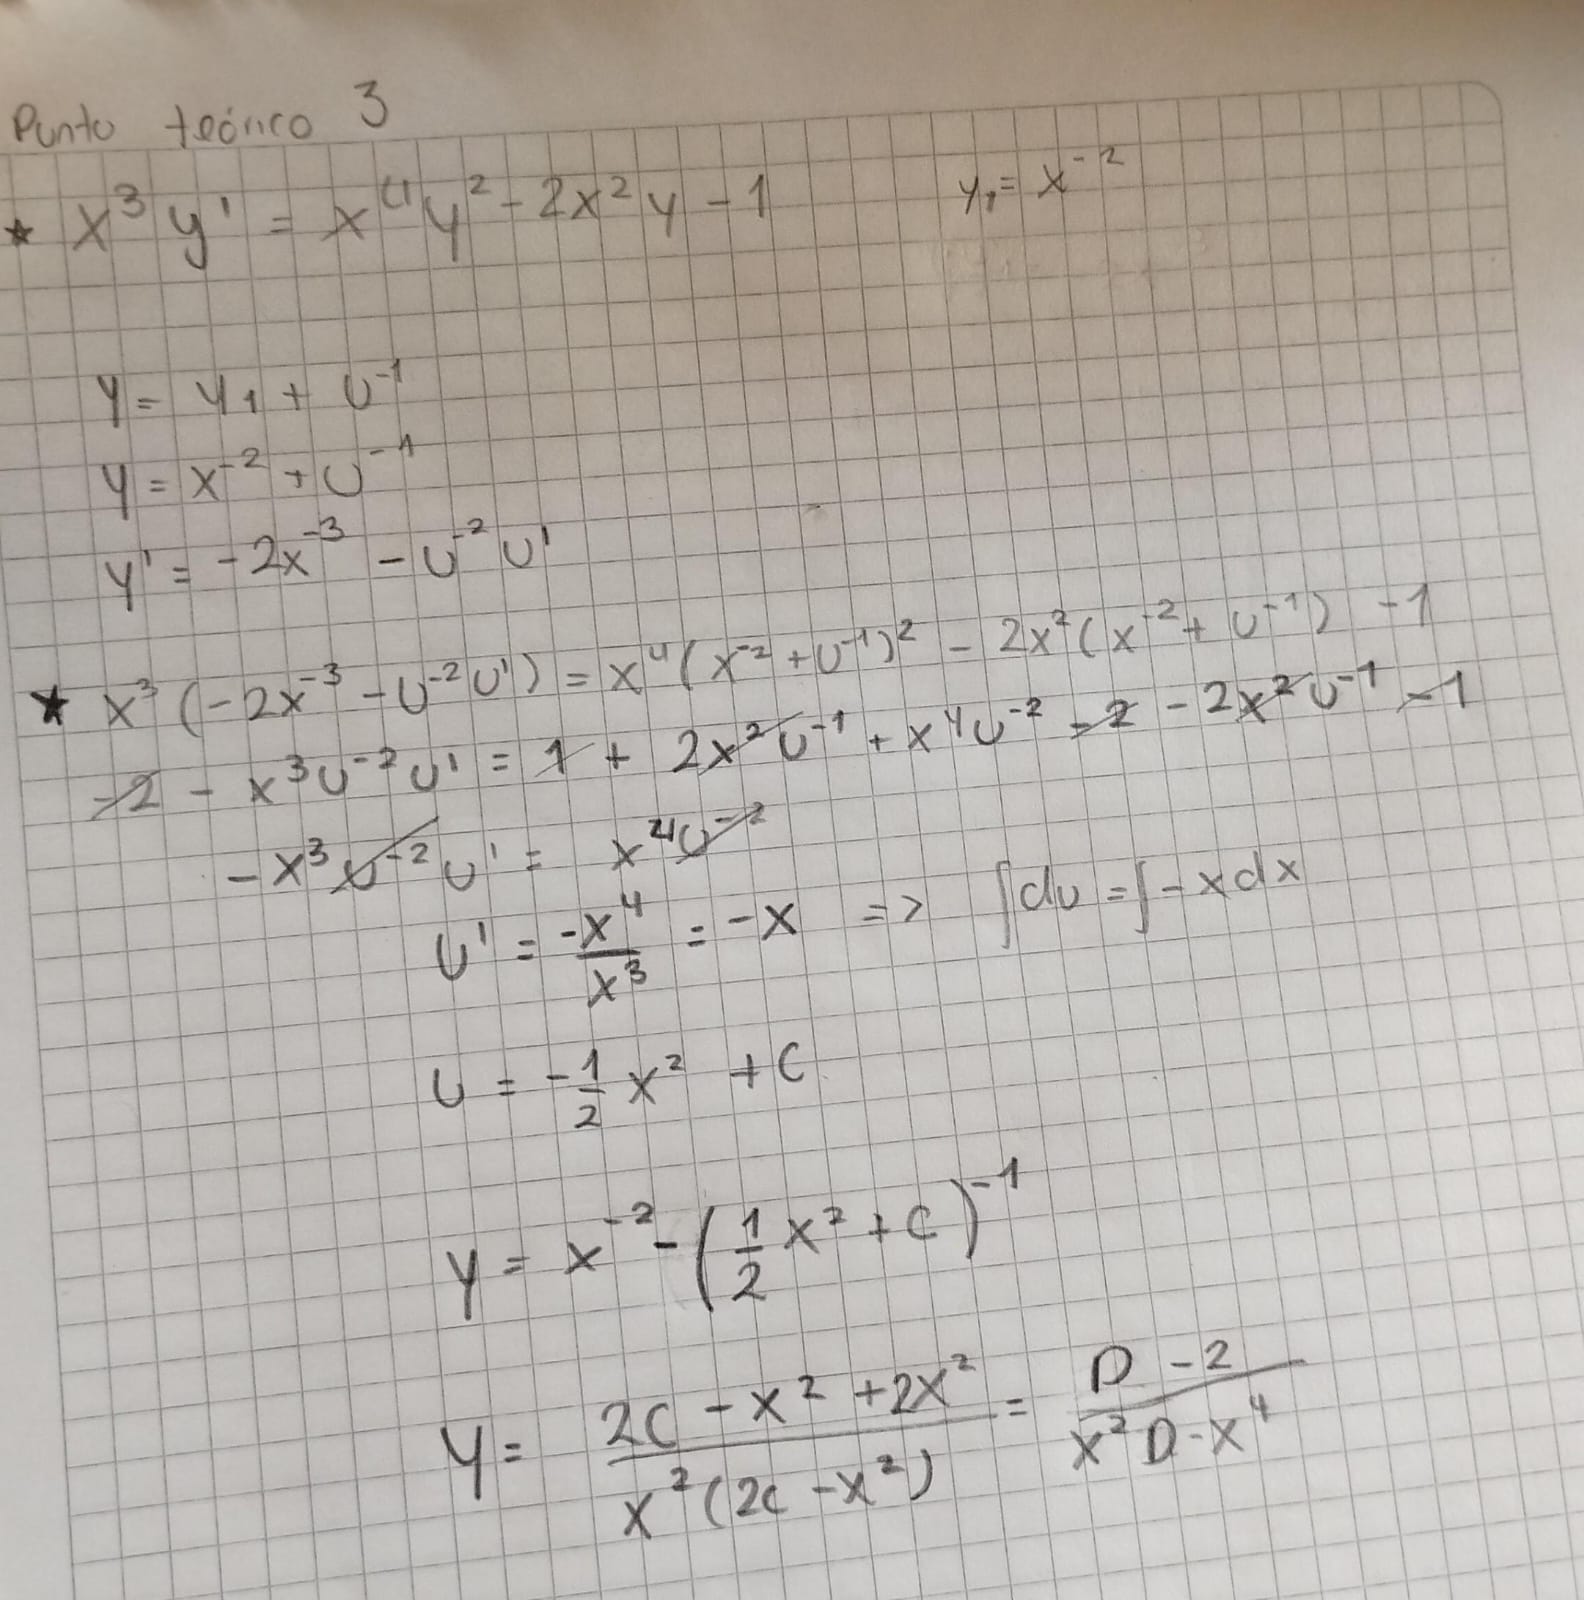 Punto teórico 3
★ x³y' = x⁴y² - 2x²y - 1 y₁ = x⁻²
y = y₁ + u⁻¹
y = x⁻² + u⁻¹
y' = -2x⁻³ - u⁻² u'
★ x³(-2x⁻³ - u⁻²u') = x⁴(x⁻² + u⁻¹)² - 2x²(x⁻² + u⁻¹) - 1
-2 - x³u⁻²u' = 1 + 2x²u⁻¹ + x⁴u⁻² - 2 - 2x²u⁻¹ - 1
-x³u⁻²u' = x⁴u⁻²
u' = -x⁴/x³ = -x => ∫du = ∫-xdx
u = -1/2 x² + C
y = x⁻² - (1/2 x² + C)⁻¹
y = (2C - x² + 2x²)/(x²(2C - x²)) = (D - 2)/(x²D - x⁴)